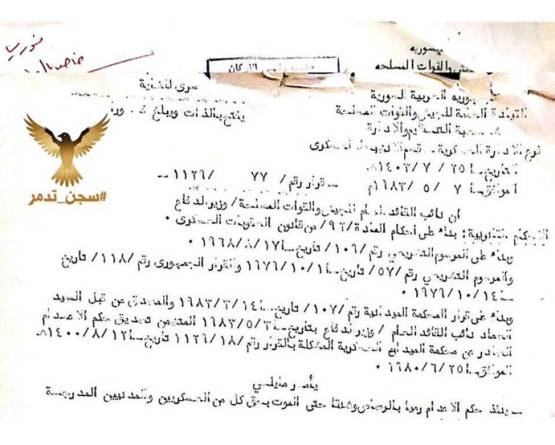 فورية
ـهورية
ـش والقوات المسلحه
ـة الاركان
سري للغاية
يفتح بالذات ويبلغ
ـهوريه العربية السورية
القيادة العامة للجيش والقوات المسلحة
شعبة التنظيم والادارة
نوع الادارة العسكرية - قسم الانضباط العسكري
التاريخ ٢٥/ ٧ / ١٤٠٣هـ
الموافق ٧ / ٥ / ١٩٨٣م - قرار رقم/ ٧٧ / ١١٢٦ --
#سجن_تدمر
ان نائب القائد العام للجيش والقوات المسلحة / وزير الدفاع
الاحكام القانونية: بناء على احكام المادة /٩٣/ من قانون العقوبات العسكري ٠
وبناء على المرسوم التشريعي رقم /١٠٦/ تاريخ ١٧/٨/١٩٦٨
والمرسوم التشريعي رقم /٥٧/ تاريخ ١/١٠/١٩٧٦ والقرار الجمهوري رقم /١١٨/ تاريخ
١٤/١٠/١٩٧٦ ٠
وبناء على قرار المحكمة الميدانية رقم /١٠٧/ تاريخ ١٤/٣/١٩٨٣ والمصدق من قبل السيد
العماد نائب القائد العام / وزير الدفاع بتاريخ ٣/٥/١٩٨٣ المتضمن تصديق حكم الاعدام
الصادر عن محكمة الميدان العسكرية المشكلة بالقرار رقم /١٨/١١٢٦ تاريخ ١٢/٨/١٤٠٠هـ
الموافق ٢٥/٦/١٩٨٠ ٠
يأمر مايلي
ـ ينفذ حكم الاعدام رميا بالرصاص وشنقا حتى الموت بحق كل من العسكريين والمدنيين المدرجة